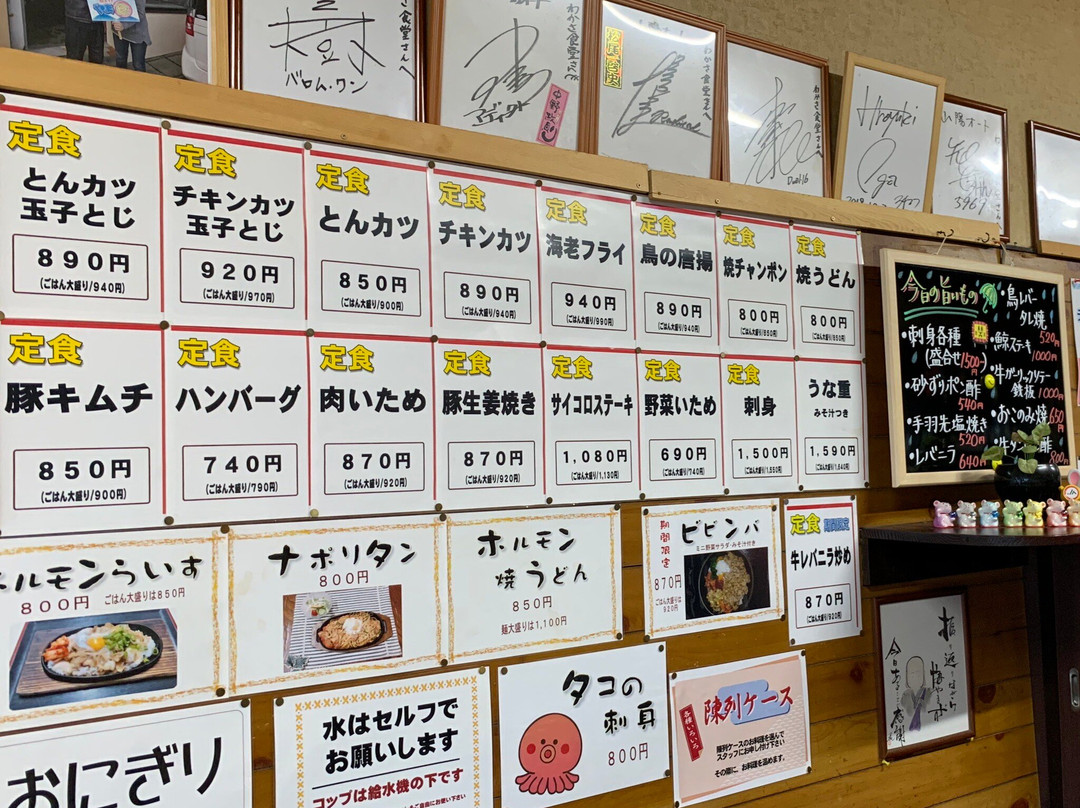 食堂さんへ
バロム・ワン
わかさ食堂さんへ
わかさ食堂さんへ
わかさ食堂さんへ
Hiroyuki
Oga
山陽オート
3969
定食
とんカツ
玉子とじ
890円
(ごはん大盛り/940円)
定食
チキンカツ
玉子とじ
920円
(ごはん大盛り/970円)
定食
とんカツ
850円
(ごはん大盛り/900円)
定食
チキンカツ
890円
(ごはん大盛り/940円)
定食
海老フライ
940円
(ごはん大盛り/990円)
定食
鳥の唐揚
890円
(ごはん大盛り/940円)
定食
焼チャンポン
800円
(ごはん大盛り/850円)
定食
焼うどん
800円
(ごはん大盛り/850円)
定食
豚キムチ
850円
(ごはん大盛り/900円)
定食
ハンバーグ
740円
(ごはん大盛り/790円)
定食
肉いため
870円
(ごはん大盛り/920円)
定食
豚生姜焼き
870円
(ごはん大盛り/920円)
定食
サイコロステーキ
1,080円
(ごはん大盛り/1,130円)
定食
野菜いため
690円
(ごはん大盛り/740円)
定食
刺身
1,500円
(ごはん大盛り/1,550円)
うな重
みそ汁つき
1,590円
(ごはん大盛り/1,640円)
今日の旨いもの
・刺身各種
(盛合せ1500円)
・砂ずりポン酢
540円
・手羽先塩焼き
520円
・レバニラ 640円
・鳥レバー
タレ焼
520円
・鯨ステーキ
1000円
・牛ガーリックソテー
鉄板 1000円
・おこのみ焼 650円
・牛タン 酢
800円
ホルモンらいす
800円 ごはん大盛りは850円
ナポリタン
800円
ホルモン
焼うどん
850円
麺大盛りは1,100円
期間限定
ビビンバ
ミニ野菜サラダ・みそ汁付き
870円
ごはん大盛りは
920円
定食 期間限定
牛レバニラ炒め
870円
(ごはん大盛り/920円)
おにぎり
水はセルフで
お願いします
コップは給水機の下です
ご自由にお使い下さい
タコの
刺身
800円
各種いろいろ
陳列ケース
陳列ケースのお料理を選んで
スタッフにお申し付け下さい
その際に、お料理を温めます。